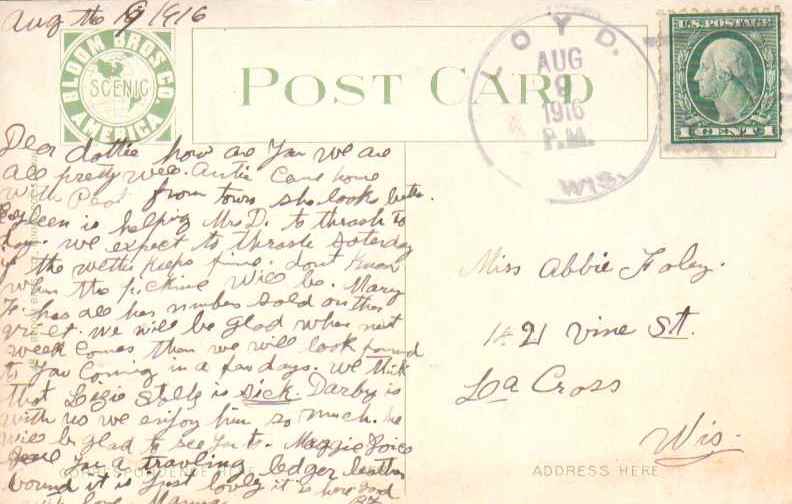 Aug the 9 1916
BLOOM BROS. CO.
SCENIC
AMERICA
POST CARD
LOYD.
AUG
9
1916
P.M.
WIS.
U.S. POSTAGE
1 CENT 1
Dear dottie how are you we are
all pretty well. Antie Came home
with Paul from town she looks better.
is helping Mrs D. to thrash to
day. we expect to thrash Saterday
if the wether Keeps fine. dont Know
when the picknic will be. Mary
F. has all her number sold on the
quilt. we will be glad when next
week comes then we will look forward
to you Coming in a few days. we think
that Lizie is sick. Darby is
with us we enjoy him so much. he
will be glad to see you to. Maggie
you a travling ledger leather
bound it is just lovely it is here
with love
Miss Abbie Foley.
1421 Vine St.
La Cross
Wis.
CORRESPONDENCE HERE
ADDRESS HERE